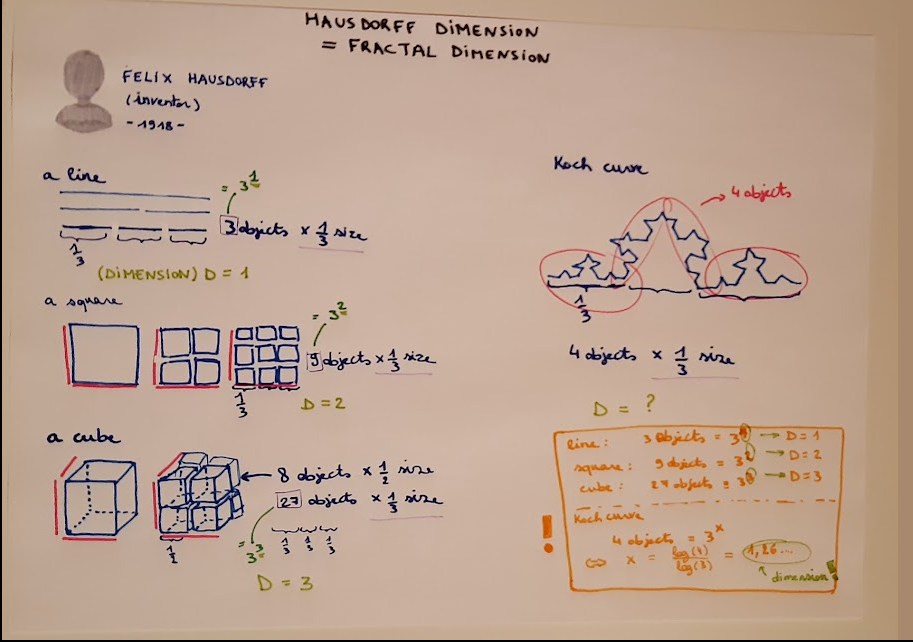 HAUSDORFF DIMENSION
= FRACTAL DIMENSION
FELIX HAUSDORFF
(inventor)
- 1918 -
a line
= 3^1
3 objects × 1/3 size
1/3
(DIMENSION) D = 1
a square
= 3^2
9 objects × 1/3 size
1/3
D = 2
a cube
8 objects × 1/2 size
27 objects × 1/3 size
1/3 1/3 1/3
1/2
= 3^3
D = 3
Koch curve
4 objects
1/3
4 objects × 1/3 size
D = ?
line: 3 objects = 3^1 → D = 1
square: 9 objects = 3^2 → D = 2
cube: 27 objects = 3^3 → D = 3
Koch curve
4 objects = 3^x
! ⇔ x = log(4)/log(3) = 1,26...
dimension!